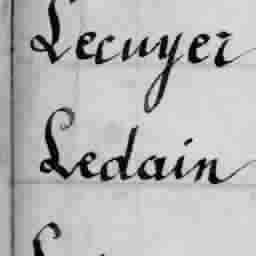 Lecuyer
Ledain